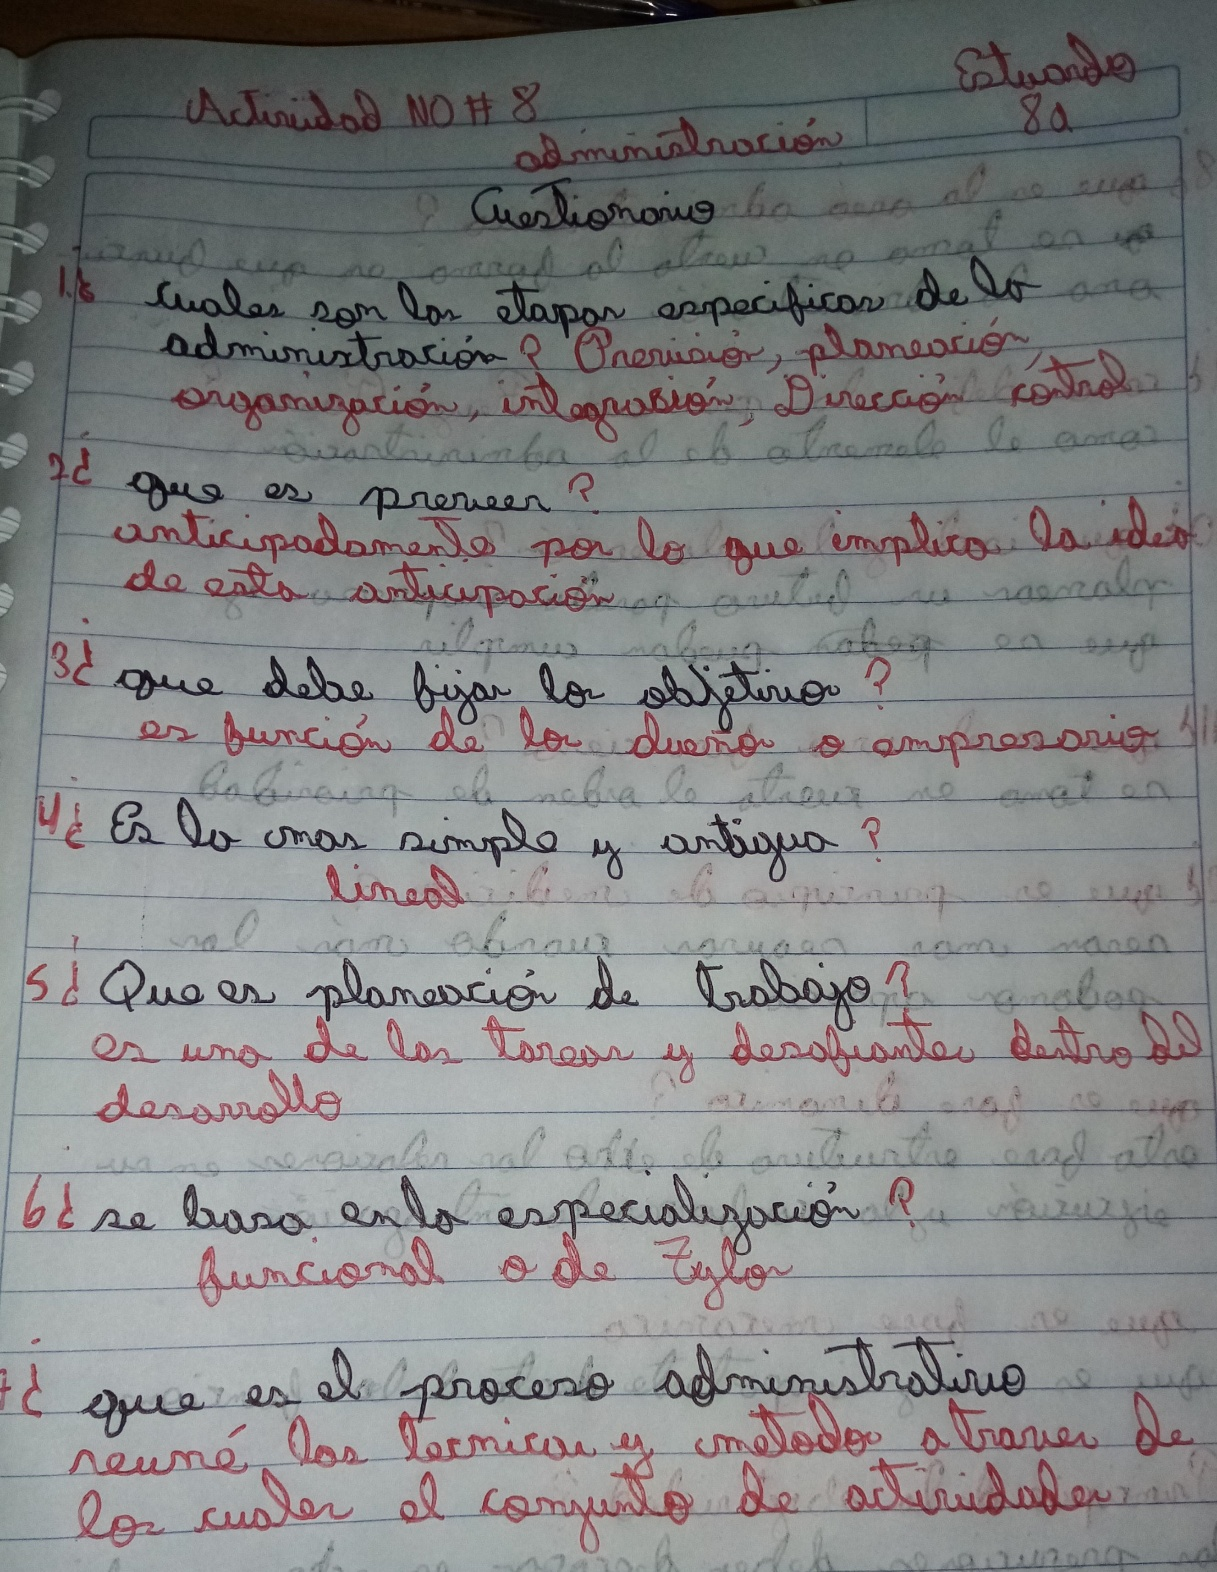 Estuardo
Actividad NO # 8
8a
administración
Cuestionario
1.¿ cuales son las etapas especificas de la
administración? Previsión, planeación,
organización, integrasión, Dirección control
2¿ que es preveer?
anticipadamente por lo que implica la idea
de esta anticipación
3¿ que debe fijar los objetivos?
es función de los dueños o empresario
4¿ Es la mas simple y antigua?
lineal
5¿ Que es planeación de trabajo?
es una de las tareas y desafiantes dentro del
desarrollo
6¿ se basa en la especialización?
funcional o de Tylor
7¿ que es el proceso administrativo
reuné las tecnicas y metodos a traves de
los cuales el conjunto de actividades